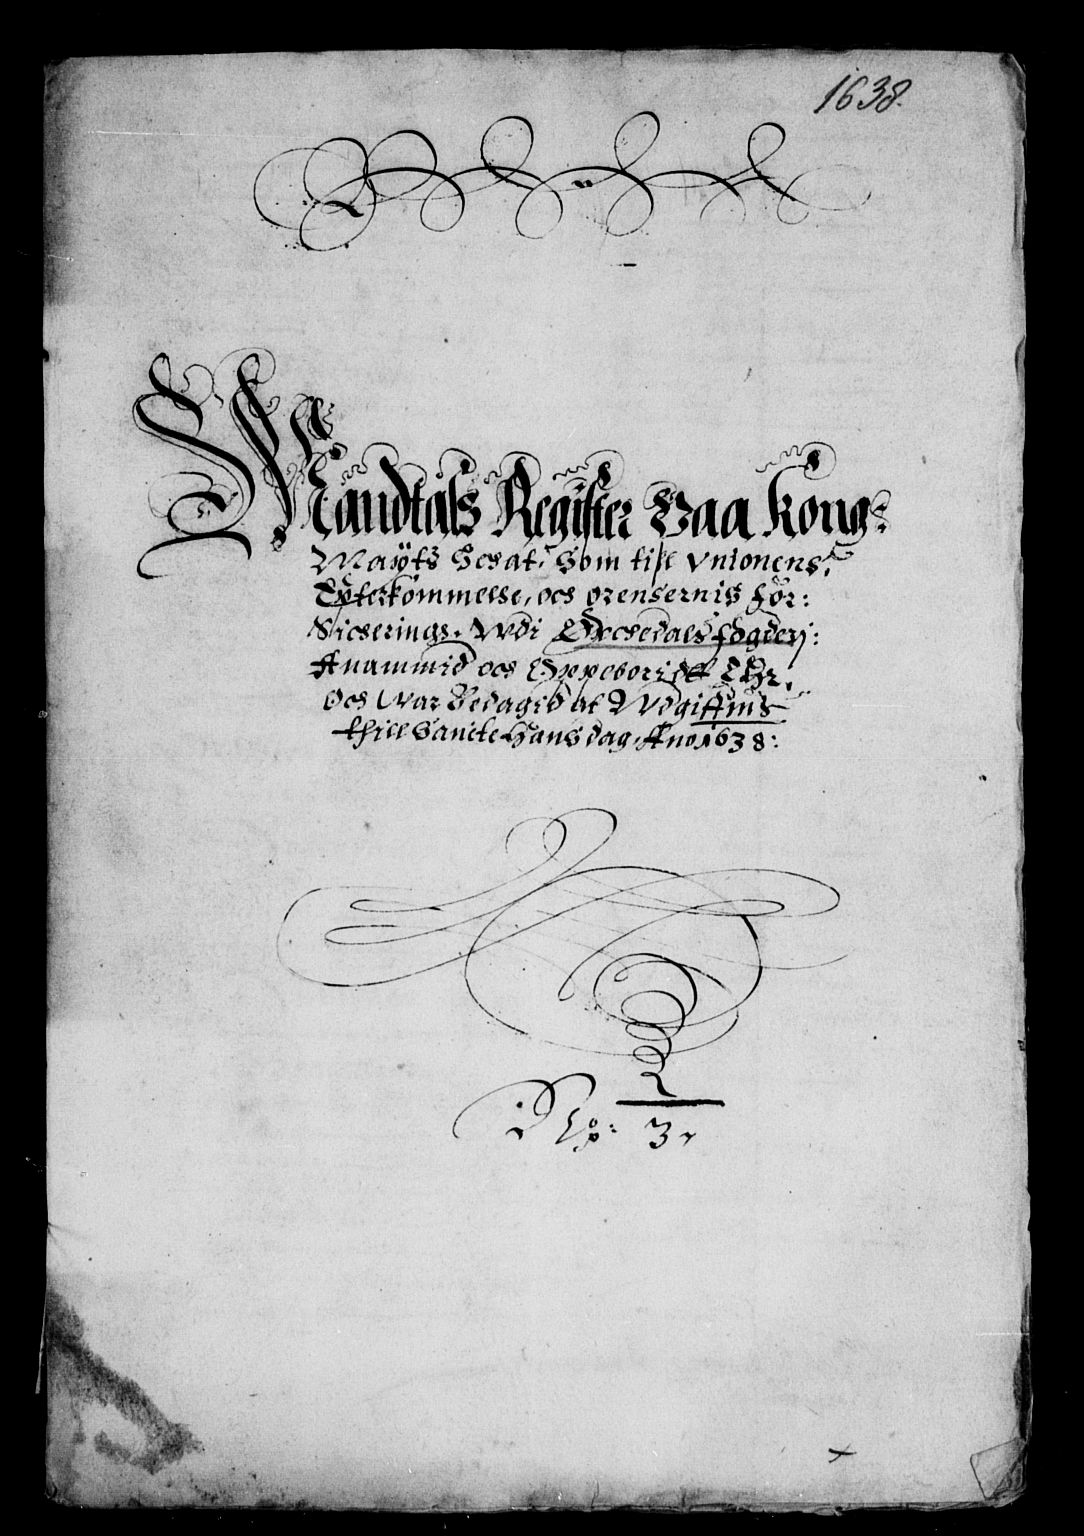 1638.
Mandtals Register Paa Kong:
Maÿts Schat, Som till Vnionens
Epterkommelse, och Grensernis For:
Sichrings, Wdi Orchedals fogderj:
Anammid och Oppeborid Ehr,
Och War Bedagid at Wdgiffuis
thill Sancte Hans dag, Ano 1638:
3